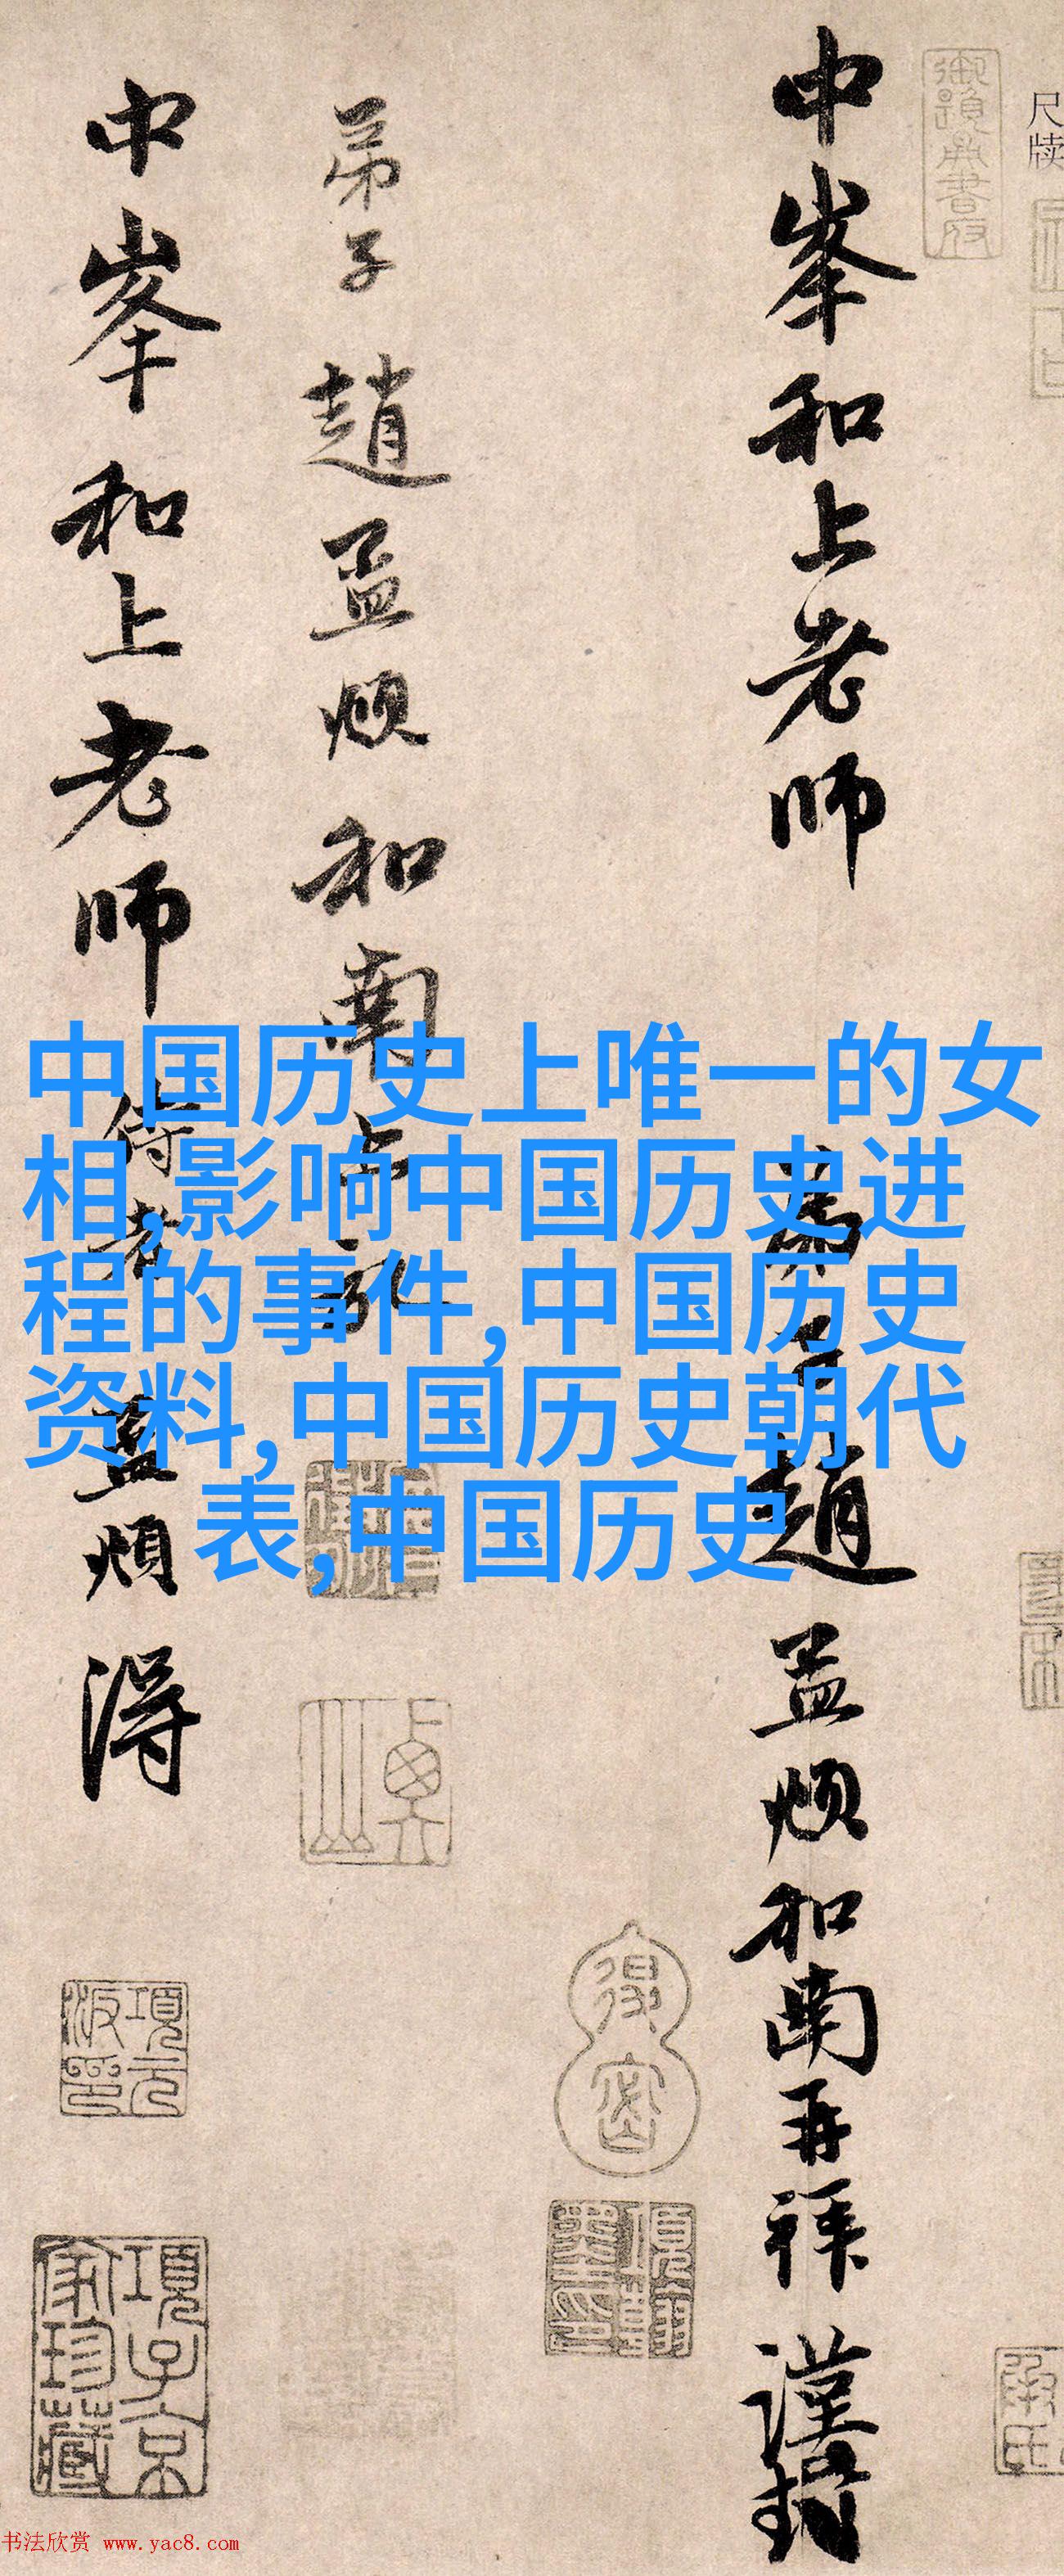 中国历史上唯一的女
相,影响中国历史进
程的事件,中国历史
资料,中国历史朝代
表,中国历史
尺牍
中峯和上老师
趙孟頫和南再拜謹封
弟子趙孟頫和南上
中峯和上老师侍者孟頫
項元
汳印
項子京
家珍藏
书法欣赏 www.yac8.com